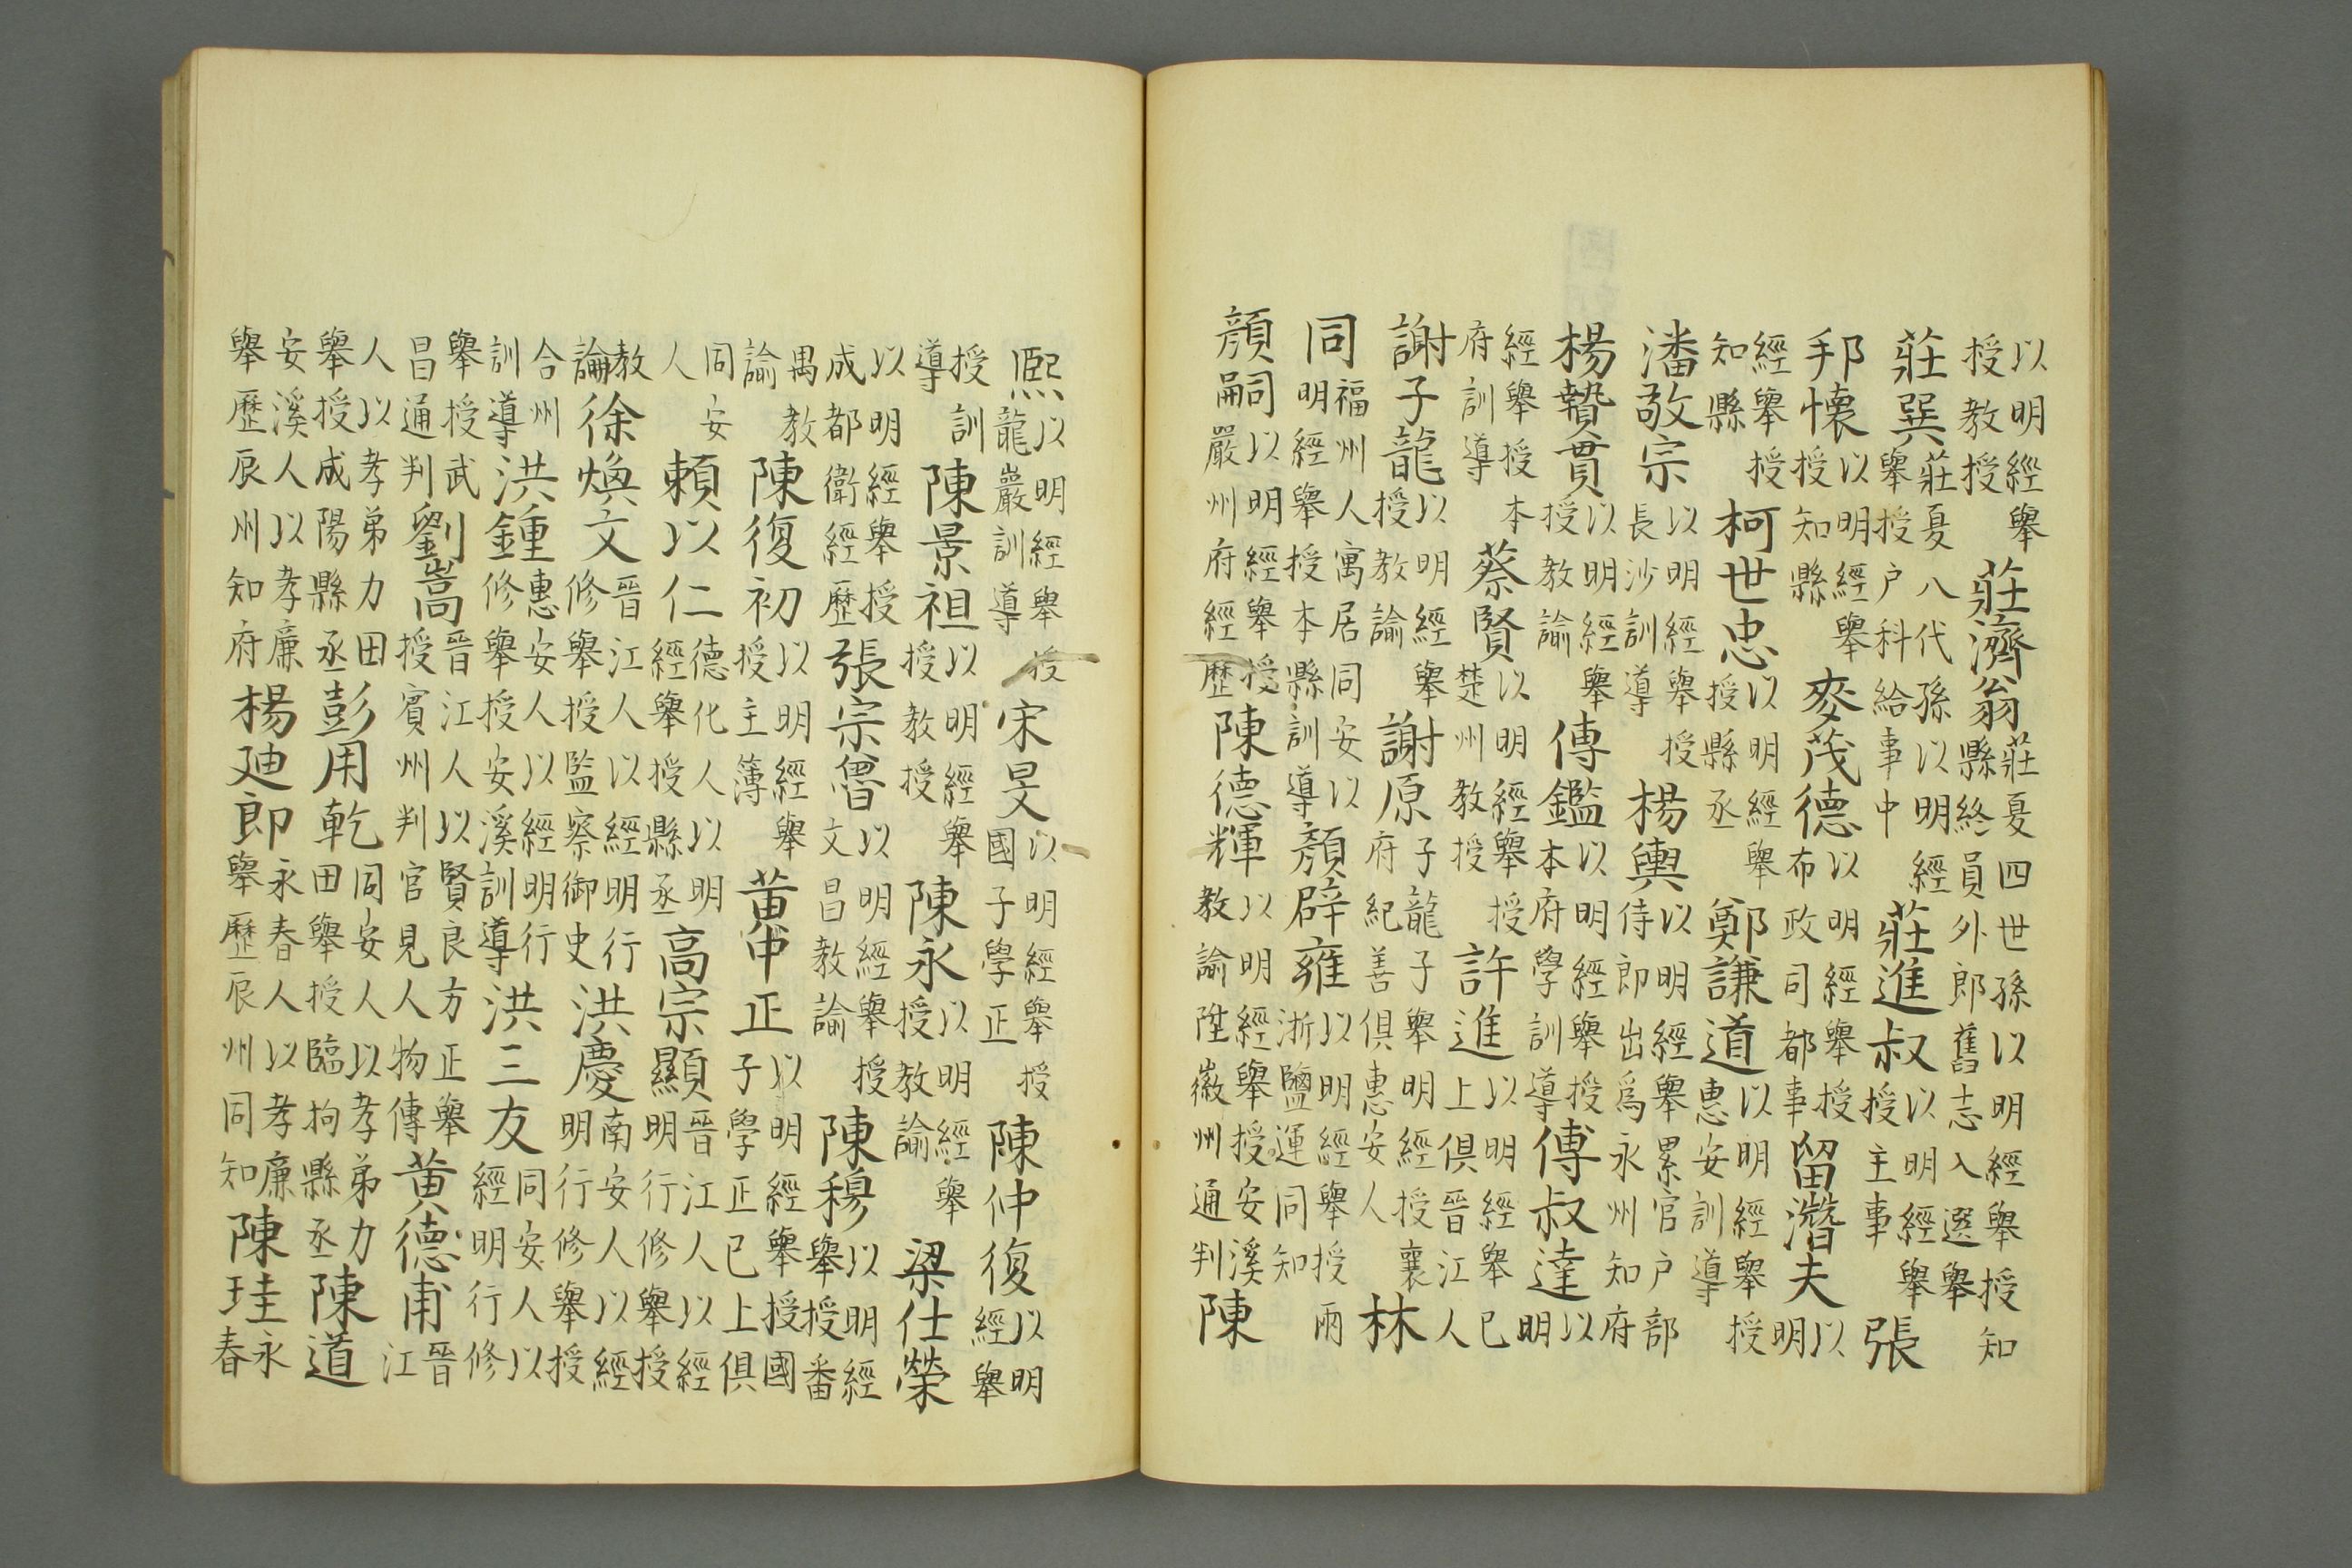 以明經舉授教授莊濟翁莊夏四世孫以明經舉授知縣終員外郎舊志入選舉
莊巽莊夏八代孫以明經舉授户科給事中莊進叔以明經舉授主事張
邦懷以明經舉授知縣麥茂德以明經舉授布政司都事留潛夫以明
經舉授知縣柯世忠以明經舉授縣丞鄭謙道以明經舉授惠安訓導
潘敬宗以明經舉授長沙訓導楊輿以明經舉累官户部侍郎出爲永州知府
楊贄貫以明經舉授教諭傅鑑以明經舉授本府學訓導傅叔達以明
經舉授本府訓導蔡賢以明經舉授楚州教授許進以明經舉已上俱晉江人
謝子龍以明經舉授教諭謝原子龍子舉明經授襄府紀善俱惠安人林
同福州人寓居同安以明經舉授本縣訓導顏辟雍以明經舉授兩浙鹽運同知
顏嗣以明經舉授嚴州府經歷陳德輝以明經舉授安溪教諭陞徽州通判陳
熙以明經舉授龍巖訓導宋旻以明經舉授國子學正陳仲復以明經舉
授訓導陳景祖以明經舉授教授陳永以明經舉授教諭梁仕榮
以明經舉授成都衛經歷張宗魯以明經舉授文昌教諭陳穆以明經舉授番
禺教諭陳復初以明經舉授主簿黃中正以明經舉授國子學正已上俱
同安人賴以仁德化人以明經舉授縣丞高宗顯晉江人以經明行修舉授
教諭徐煥文晉江人以經明行修舉授監察御史洪慶南安人以經明行修舉授
合州訓導洪鍾惠安人以經明行修舉授安溪訓導洪三友同安人以經明行修
舉授武昌通判劉嵩晉江人以賢良方正舉授賓州判官見人物傳黃德甫晉江
人以孝弟力田舉授成陽縣丞彭用乾同安人以孝弟力田舉授臨朐縣丞陳道
安溪人以孝廉舉歷辰州知府楊廸郎永春人以孝廉舉歷辰州同知陳珪永春